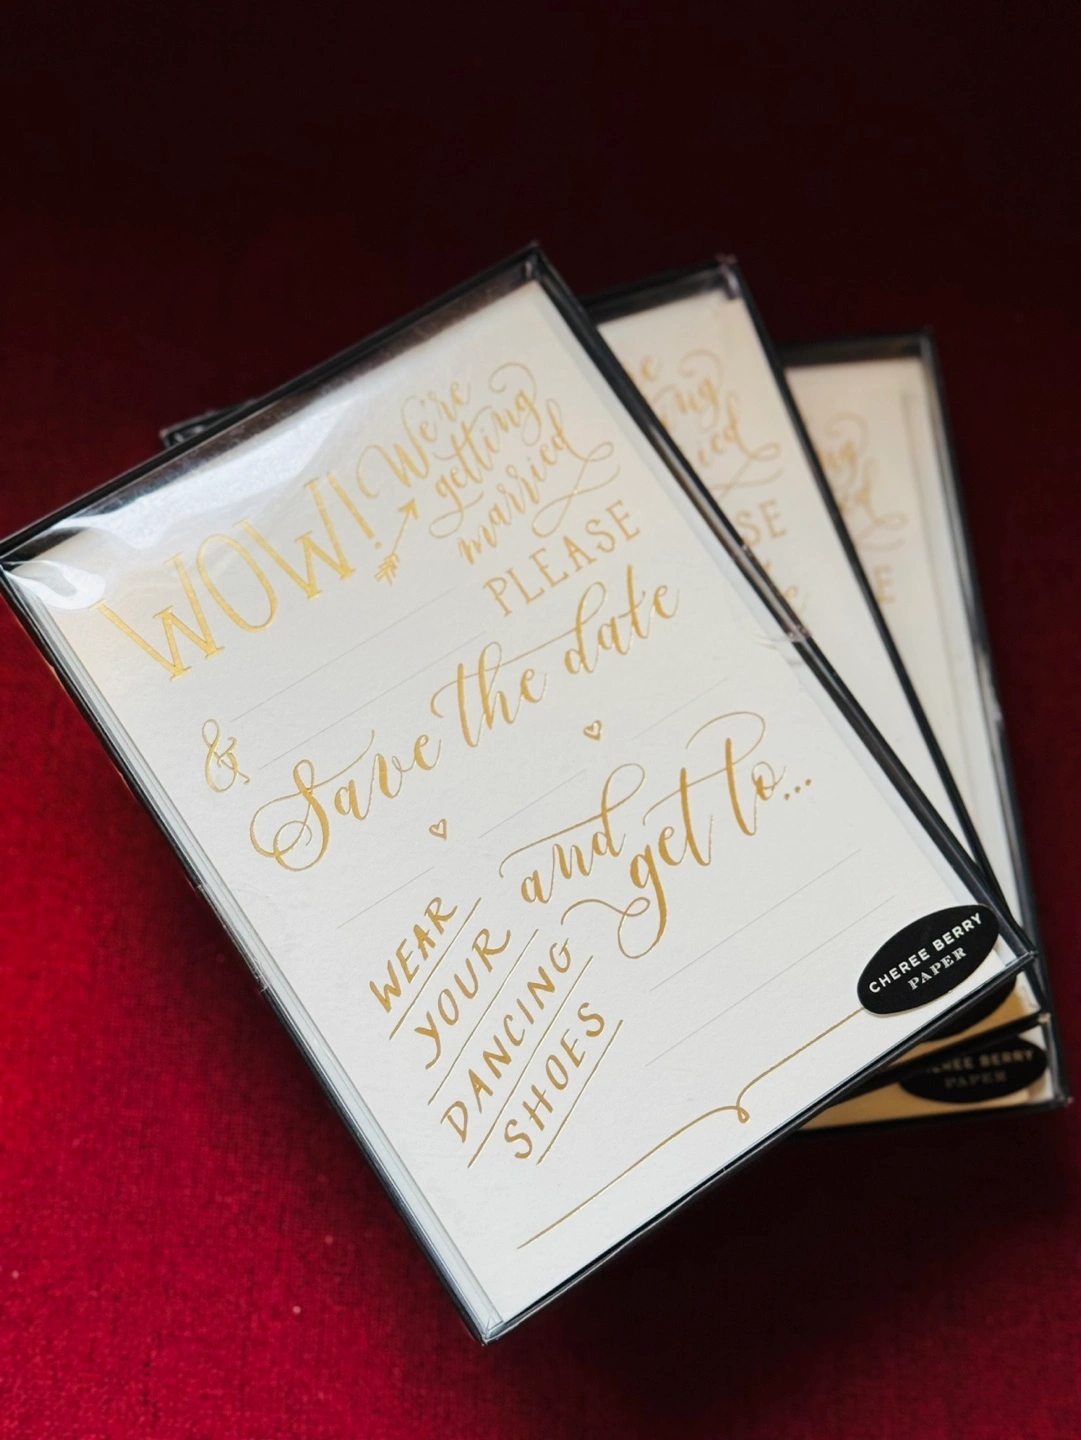 WOW!
We're
getting
married
PLEASE
&
Save the date
and
get to...
WEAR
YOUR
DANCING
SHOES
CHEREE BERRY
PAPER
SE
BERRY
PAPER